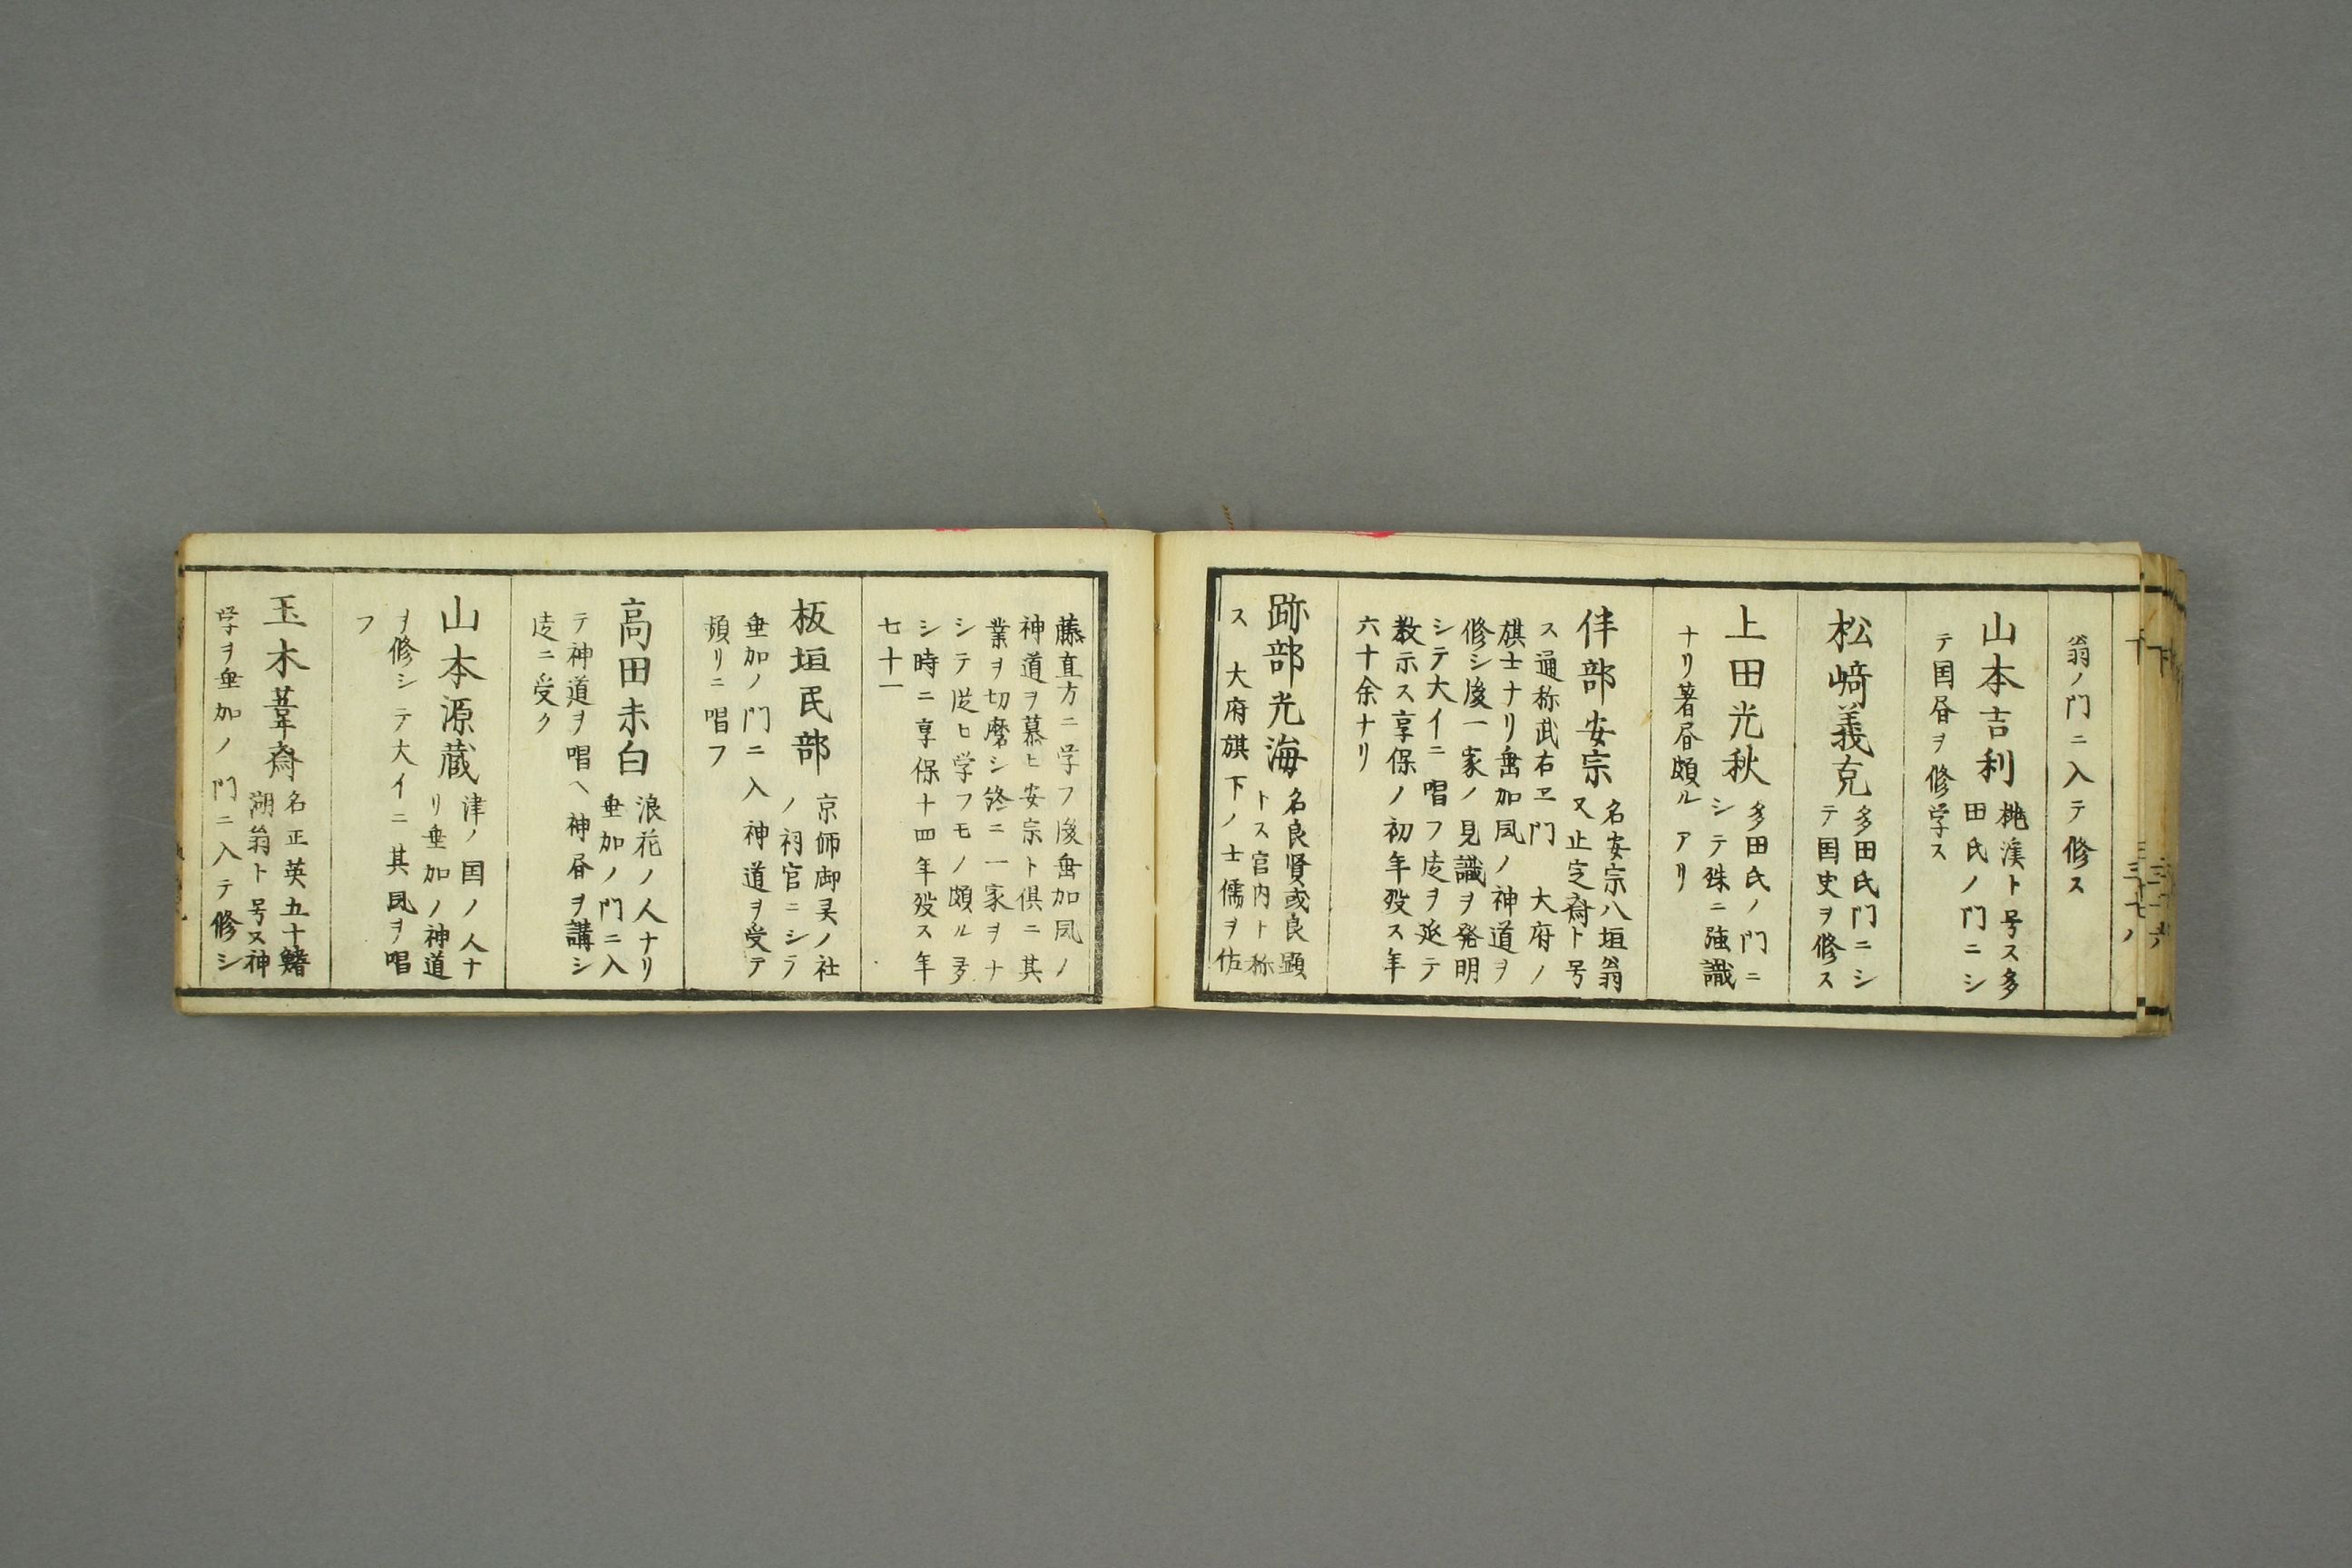 翁ノ門ニ入テ修ス
山本吉利 桃渓ト号ス多
田氏ノ門ニシ
テ国昼ヲ修学ス
松﨑義克 多田氏門ニシ
テ国史ヲ修ス
上田光秋 多田氏ノ門ニ
シテ殊ニ強識
ナリ著昼頗ル アリ
伴部安宗 名安宗八垣翁
又止定斎ト号
ス通称武右ヱ門 大府ノ
旗士ナリ垂加風ノ神道ヲ
修シ後一家ノ見識ヲ発明
シテ大イニ唱フ徒ヲ延テ
教示ス享保ノ初年歿ス年
六十余ナリ
跡部光海 名良賢或良顕
トス宮内ト称
ス 大府旗下ノ士儒ヲ佐
藤直方ニ学フ後垂加風ノ
神道ヲ慕ヒ安宗ト倶ニ其
業ヲ切磨シ終ニ一家ヲナ
シテ従ヒ学フモノ頗ル多
シ時ニ享保十四年歿ス年
七十一
板垣民部 京師御灵ノ社
ノ祠官ニシテ
垂加ノ門ニ入神道ヲ受テ
頻リニ唱フ
高田未白 浪花ノ人ナリ
垂加ノ門ニ入
テ神道ヲ唱ヘ神昼ヲ講シ
徒ニ受ク
山本源蔵 津ノ国ノ人ナ
リ垂加ノ神道
ヲ修シテ大イニ其風ヲ唱
フ
玉木葦斎 名正英五十鰭
湖翁ト号又神
学ヲ垂加ノ門ニ入テ修シ